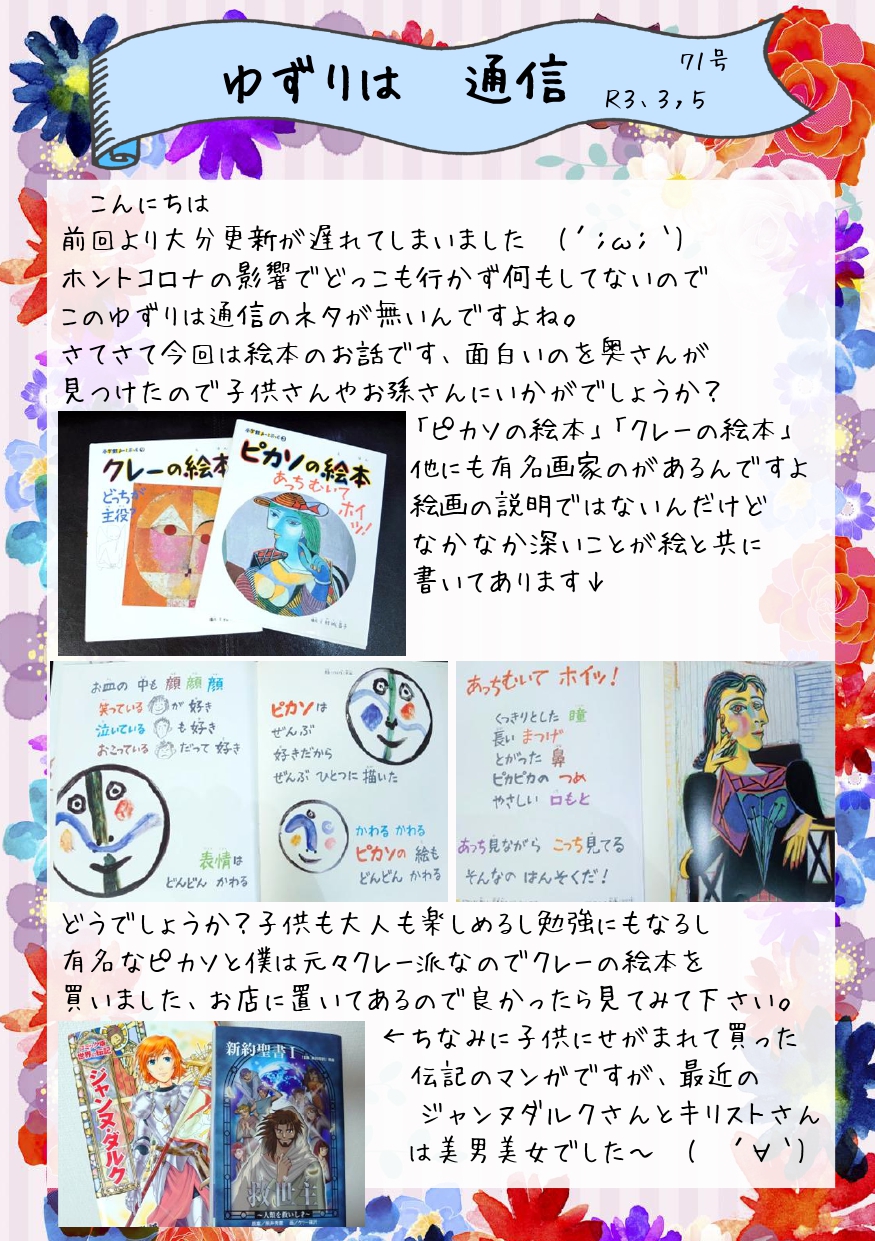 ゆずりは 通信
71号
R3、3,5
こんにちは
前回より大分更新が遅れてしまいました (´;ω;`)
ホントコロナの影響でどっこも行かず何もしてないので
このゆずりは通信のネタが無いんですよね。
さてさて今回は絵本のお話です、面白いのを奥さんが
見つけたので子供さんやお孫さんにいかがでしょうか?
クレーの絵本
どっちが
主役?
ピカソの絵本
あっちむいて
ホイッ!
「ピカソの絵本」「クレーの絵本」
他にも有名画家のがあるんですよ
絵画の説明ではないんだけど
なかなか深いことが絵と共に
書いてあります↓
お皿の 中も 顔 顔 顔
笑っている が 好き
泣いている も 好き
おこっている だって 好き
表情は
どんどん かわる
ピカソは
ぜんぶ
好きだから
ぜんぶ ひとつに 描いた
かわる かわる
ピカソの 絵も
どんどん かわる
あっちむいて ホイッ!
くっきりとした 瞳
長い まつげ
とがった 鼻
ピカピカの つめ
やさしい 口もと
あっち見ながら こっち見てる
そんなの はんそくだ!
どうでしょうか?子供も大人も楽しめるし勉強にもなるし
有名なピカソと僕は元々クレー派なのでクレーの絵本を
買いました、お店に置いてあるので良かったら見てみて下さい。
コミック版
世界の伝記
ジャンヌ・ダルク
新約聖書Ⅰ
救世主
~人類を救いし者~
←ちなみに子供にせがまれて買った
伝記のマンガですが、最近の
ジャンヌダルクさんとキリストさん
は美男美女でした~ ( ´∀`)